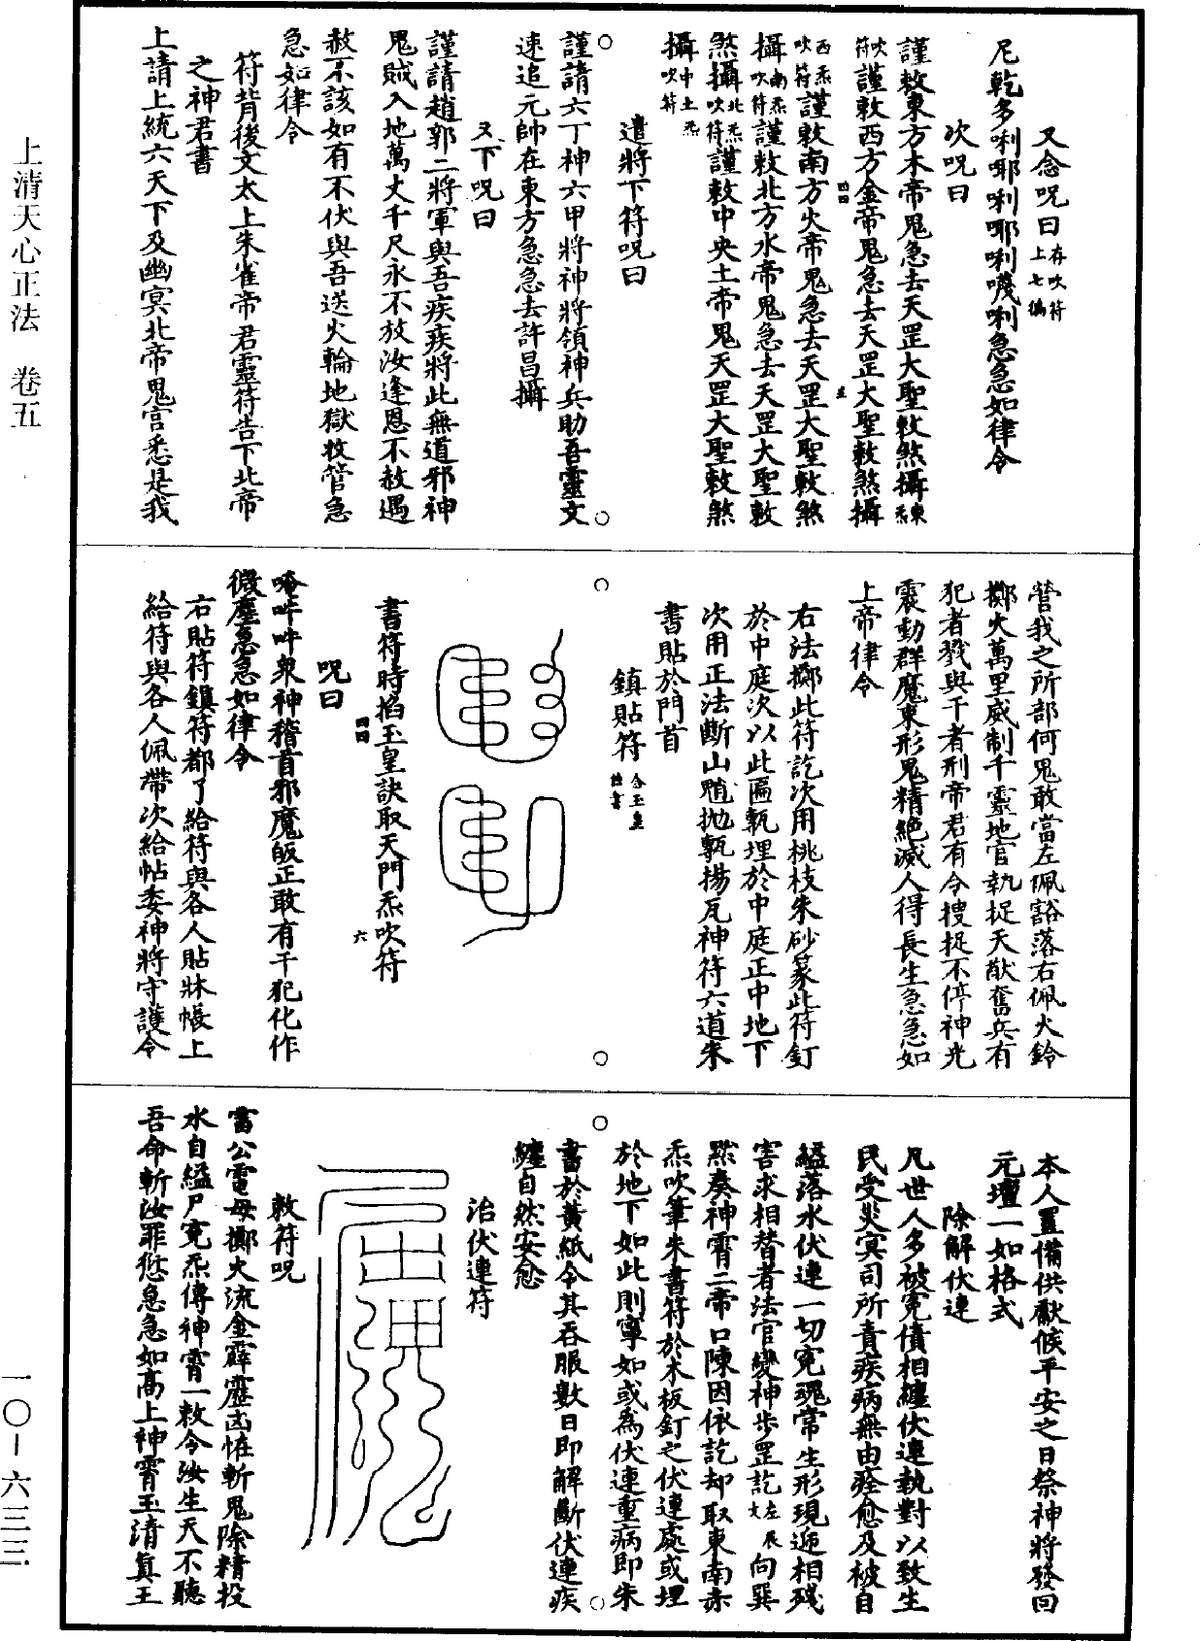 上清天心正法　卷五
一〇－六三三
又念呪曰存吹符上七徧
尼乾多唎㖿唎㖿唎㘈唎急急如律令
次呪曰
謹敕東方木帝鬼急去天罡大聖敕煞攝東炁
吹符謹敕西方金帝鬼急去天罡大聖敕煞攝
西炁吹符謹敕南方火帝鬼急去天罡大聖敕煞
攝南炁吹符謹敕北方水帝鬼急去天罡大聖敕
煞攝北炁吹符謹敕中央土帝鬼天罡大聖敕煞
攝中土炁吹符
遣將下符呪曰
謹請六丁神六甲將神將領神兵助吾靈文
速追元帥在東方急急去許昌攝
又下呪曰
謹請趙郭二將軍與吾疾疾將此無道邪神
鬼賊入地萬丈千尺永不放汝逢恩不赦遇
赦不該如有不伏與吾送火輪地獄收管急
急如律令
符背後文太上朱雀帝君靈符告下北帝
之神君書
上請上統六天下及幽冥北帝鬼官悉是我
營我之所部何鬼敢當左佩豁落右佩火鈴
擲火萬里威制千靈地官執捉天猷奮兵有
犯者戮與干者刑帝君有令搜捉不停神光
震動群魔束形鬼精絕滅人得長生急急如
上帝律令
右法擲此符訖次用桃枝朱砂篆此符釘
於中庭次以此匾甎埋於中庭正中地下
次用正法斷山魈拋甎揚瓦神符六道朱
書貼於門首
鎮貼符
書符時掐玉皇訣取天門炁吹符
呪曰
唵吽吽泉神稽首邪魔皈正敢有干犯化作
微塵急急如律令
右貼符鎮符都了給符與各人貼牀帳上
給符與各人佩帶次給帖委神將守護令
本人置備供獻候平安之日祭神將發回
元壇一如格式
除解伏連
凡世人多被冤債相纏伏連執對以致生
民受災冥司所責疾病無由痊愈及被自
縊落水伏連一切冤魂常生形現迤相殘
害求相替者法官變神步罡訖左辰文向巽
默奏神霄二帝口陳因依訖却取東南赤
炁吹筆朱書符於木板釘之伏連處或埋
於地下如此則寧如或為伏連重病即朱
書於黃紙令其吞服數日即解斷伏連疾
纏自然安愈
治伏連符
敕符呪
雷公電母擲火流金霹靂凶恠斬鬼除精投
水自縊尸冤炁傳神霄一敕令汝生天不聽
吾命斬汝罪愆急急如高上神霄玉清真王